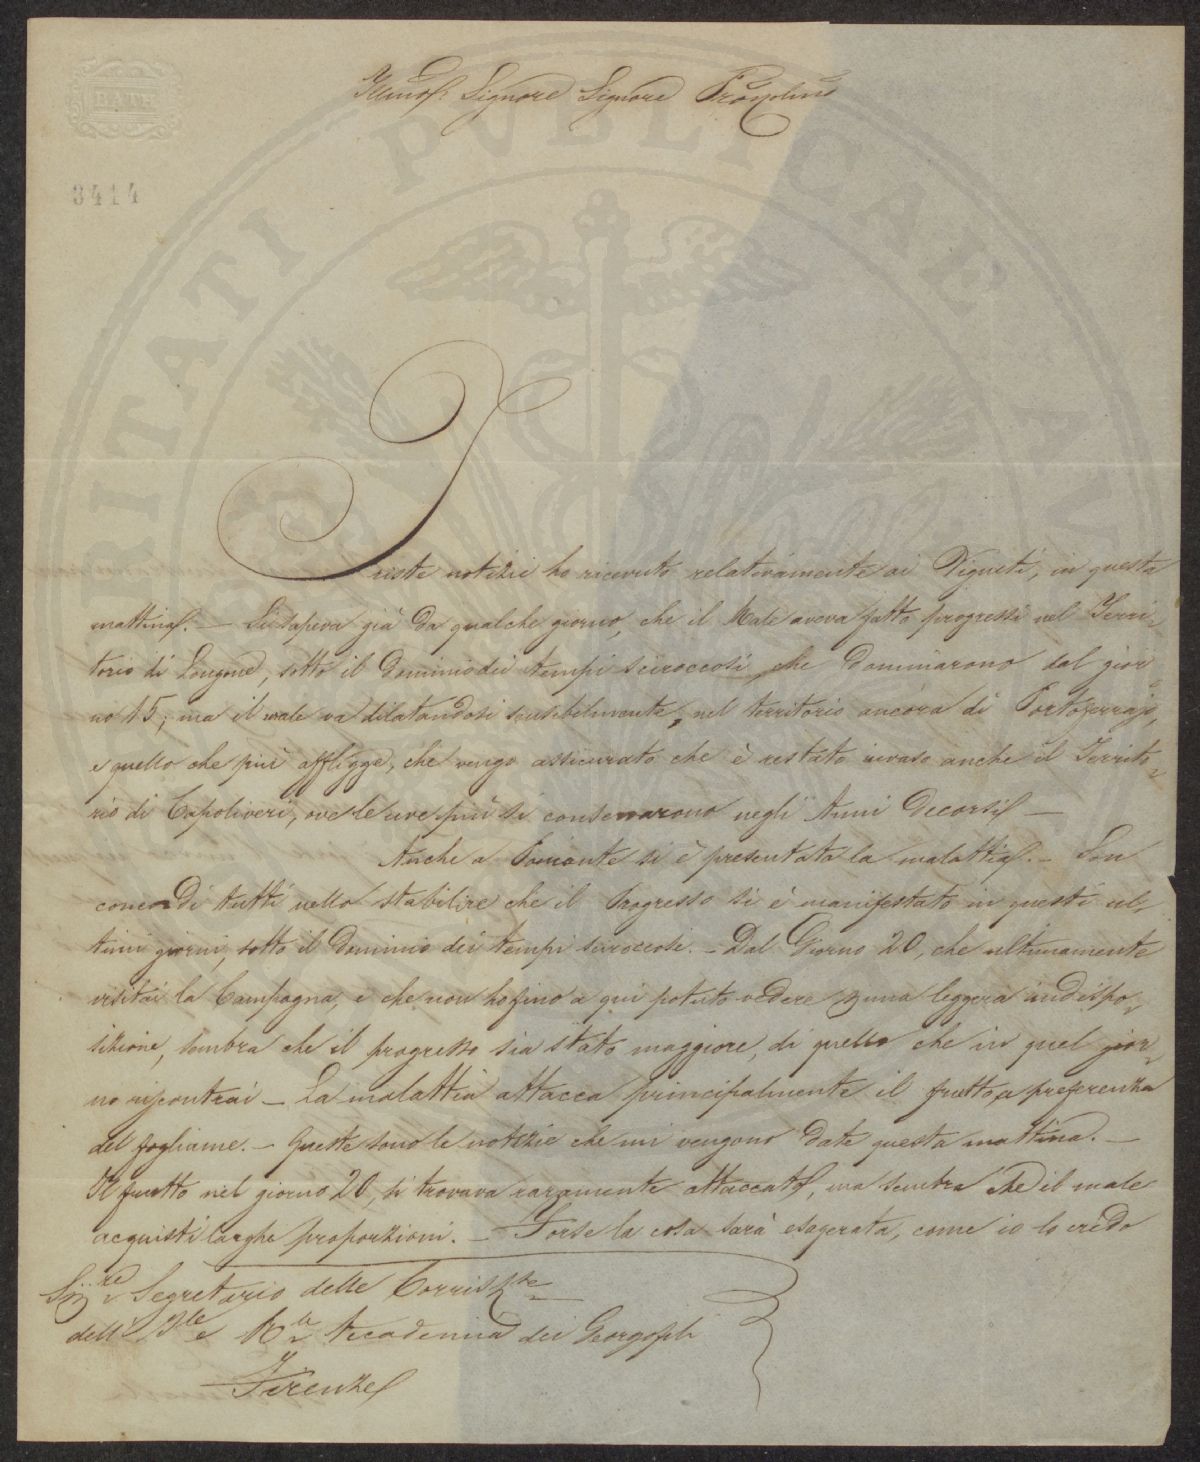 BATH
3414
PUBLICAE
Signore Signore
Queste notizie ho ricevuto relativamente ai Vigneti, in questa
mattina. — Si sapeva già da qualche giorno, che il Male aveva fatto progressi nel Terri-
torio di Longone, sotto il Dominio dei tempi sciroccosi che dominarono dal gior-
no 15; ma il male va dilatandosi sensibilmente, nel territorio ancora di Portoferrajo,
e quello che più affligge, che vengo assicurato che è restato invaso anche il Territo-
rio di Capoliveri, ove le uve più si conservarono negli Anni decorsi —
Anche a Pomonte si è presentata la malattia. — Son
concordi tutti nello stabilire che il Progresso si è manifestato in questi ul-
timi giorni, sotto il Dominio dei tempi sciroccosi. — Dal Giorno 20, che ultimamente
visitai la Campagna, e che non ho fino a qui potuto vedere p una leggera indispo-
sizione, sembra che il progresso sia stato maggiore, di quello che in quel gior-
no riscontrai — La malattia attacca principalmente il frutto, a preferenza
del fogliame. — Queste sono le notizie che mi vengono date questa mattina. —
Il frutto nel giorno 20, si trovava raramente attaccato, ma sembra che il male
acquisti larghe proporzioni. — Forse la cosa sarà esagerata, come io lo credo
Segretario delle Corrisp.ze
dell' I.le e R.le Accademia dei Georgofili
Firenze